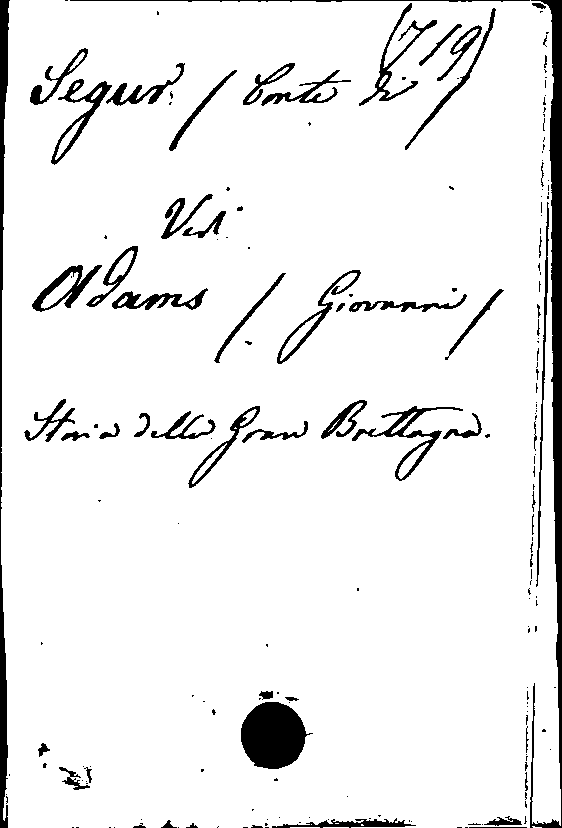 (719)
Segur / Conte di /
Vedi
Adams / Giovanni /
Storia della Gran Brettagna.